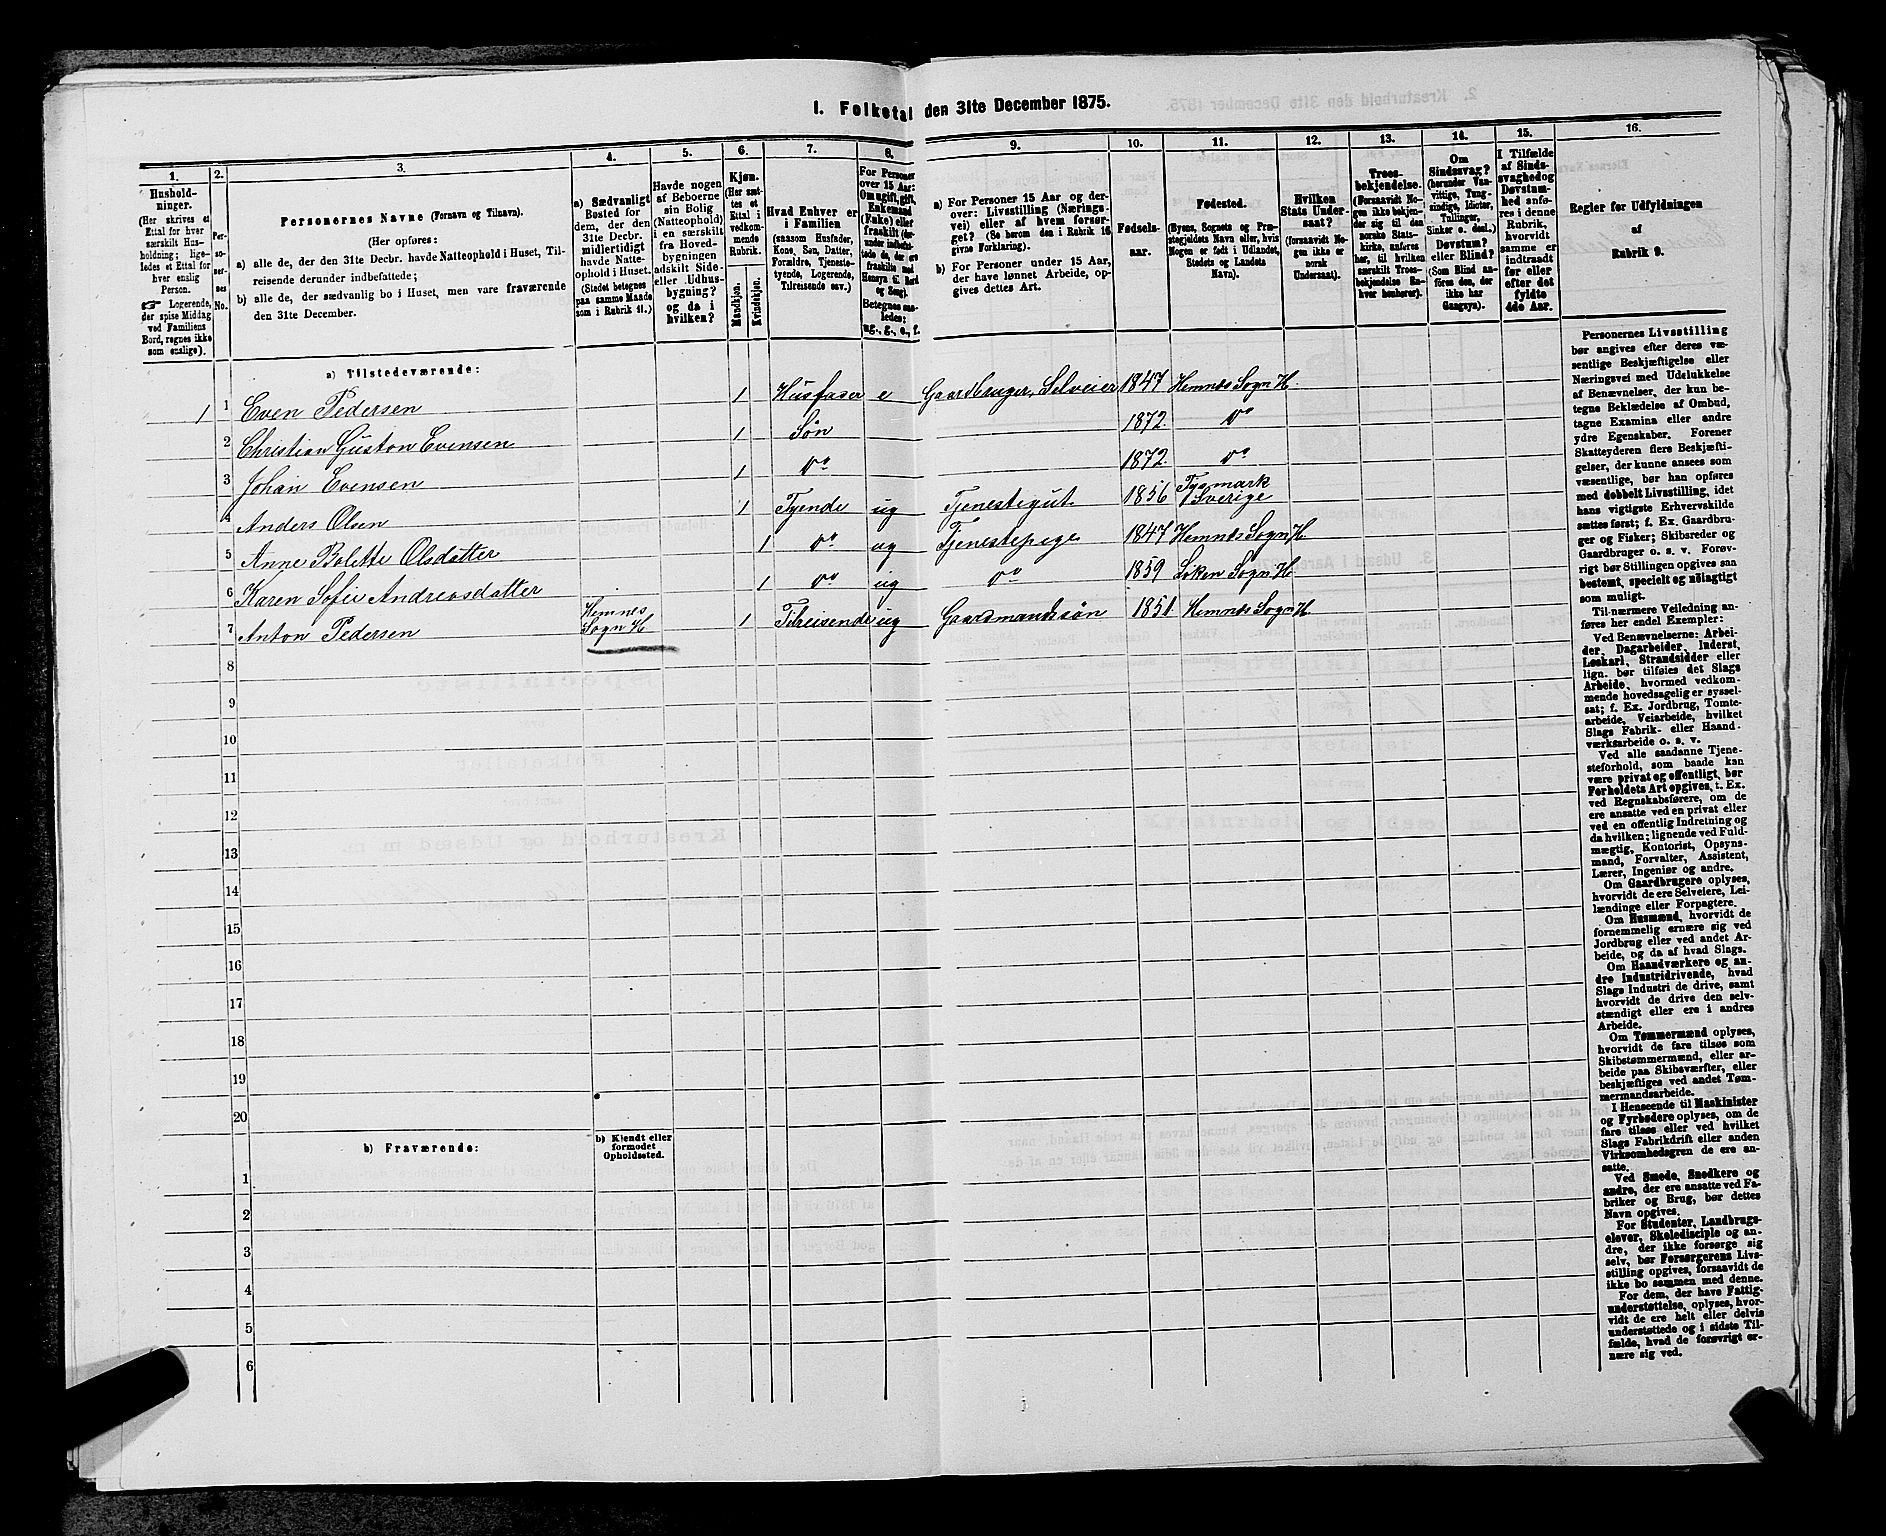 I. Folketal den 31te December 1875.
1.
2.
3.
4.
5.
6.
7.
8.
9.
10.
11.
12.
13.
14.
15.
16.
Hushold-
ninger.
(Her skrives et
Ettal for hver
særskilt Hus-
holdning; lige-
ledes et Ettal for
hver enslig
Person.
☞ Logerende,
der spise Middag
ved Familiens
Bord, regnes ikke
som enslige).
Personernes No.
Personernes Navne (Fornavn og Tilnavn).
(Her opføres:
a) alle de, der den 31te Decbr. havde Natteophold i Huset, Til-
reisende derunder indbefattede;
b) alle de, der sædvanlig bo i Huset, men vare fraværende
den 31te December.
a) Sædvanligt
Bosted for
dem, der den
31te Decbr.
midlertidigt
havde Natte-
ophold i Huset.
(Stedet betegnes
paa samme Maade
som i Rubrik 11.)
Havde nogen
af Beboerne
sin Bolig
(Natteophold)
i en særskilt
fra Hoved-
bygningen
adskilt Side-
eller Udhus-
bygning?
og da i
hvilken?
Kjøn.
(Her sæt-
tes et
Ettal i
vedkom-
mende
Rubrik.
Mandkjøn.
Kvindekjøn.
Hvad Enhver er
i Familien
(saasom Husfader,
Kone, Søn, Datter,
Forældre, Tjeneste-
tyende, Logerende,
Tilreisende osv.)
For Personer
over 15 Aar:
Om ugift, gift,
Enkemand
(Enke) eller
fraskilt
Betegnes saa-
ledes:
ug., g., e., f.
a) For Personer 15 Aar og der-
over: Livsstilling (Nærings-
vei) eller af hvem forsør-
get? (Se herom den i Rubrik 16
givne Forklaring).
b) For Personer under 15 Aar,
der have lønnet Arbeide, op-
gives dettes Art.
Fødsels-
aar.
Fødested.
(Byens, Sognets og Præ-
stegjeldets Navn eller, hvis
Nogen er født i Udlandet,
Stedets og Landets
Navn).
Hvilken
Stats Under-
saat?
(forsaavidt No-
gen ikke er
norsk
Undersaat).
Troes-
bekjendelse.
(Forsaavidt No-
gen ikke bekjen-
der sig til den
norske Stats-
kirke, anføres
her, til hvilken
særskilt Troes-
bekjendelse En-
hver henhører).
Om
Sindssvag?
(herunder Van-
vittige, Tung-
sindige, Idioter,
Tullinger,
Sinker o. desl.)
Døvstum?
eller Blind?
(Som Blind an-
føres den, der
ikke har
Gangsyn).
I Tilfælde
af Sinds-
svaghed og
Døvstum-
hed anfø-
res i denne
Rubrik,
hvorvidt
samme er
indtraadt
før eller
efter det
fyldte
4de Aar.
Regler for Udfyldningen
af
Rubrik 9.
a) Tilstedeværende:
1 1 Even Pedersen 1 Husfader e Gaardbruger, Selveier 1847 Hemnes Sogn H.
2 Christian Guston Evensen 1 Søn 1872. Do
3 Johan Evensen 1 Do 1872. Do
4 Anders Olsen 1 Tyende ug Tjenestegut 1856 Sverige
5 Anne Bolette Olsdatter 1 Do ug Tjenestepige 1847 Hemnes Sogn H.
6 Karen Sofie Andreasdatter 1 Do ug Do 1859 Løken Sogn H.
7 Anton Pedersen Hemnes Sogn H 1 Tilreisende ug Gaardmandssøn 1851. Hemnes Sogn H.
8
9
10
11
12
13
14
15
16
17
18
19
20
b) Fraværende:
b) Kjendt eller
formodet
Opholdssted.
1
2
3
4
5
6
Personernes Livsstilling
bør angives efter deres væ-
sentlige Beskjæftigelse eller
Næringsvei med Udelukkelse
af Benævnelser, der kun be-
tegne Beklædelse af Ombud,
tagne Examina eller andre
ydre Egenskaber. Forener
Skatteyderen flere Beskjæfti-
gelser, der kunne ansees som
væsentlige, bør han opføres
med dobbelt Livsstilling, idet
hans vigtigste Erhvervskilde
sættes først; f. Ex. Gaardbru-
ger og Fisker; Skibsreder og
Gaardbruger o. s. v. Forøv-
rigt bør Stillingen opgives saa
bestemt, specielt og nøiagtigt
som muligt.
Til nærmere Veiledning an-
føres her endel Exempler:
Ved Benævnelserne: Arbei-
der, Dagarbeider, Inderst,
Løskarl, Strandsidder eller
lign. bør tilføies det Slags
Arbeide, hvormed vedkom-
mende hovedsagelig er syssel-
sat; f. Ex. Jordbrug, Tomte-
arbeide, Veiarbeide, hvilket
Slags Fabrik- eller Haand-
værksarbeide o. s. v.
Ved alle saadanne Tjene-
steforhold, som baade kan
være privat og offentligt, bør
Forholdets Art opgives, t. Ex.
ved Regnskabsførere, om de
ere ansatte ved en privat eller
ved en offentlig Indretning og
da hvilken; lignende ved Fuld-
mægtig, Kontorist, Opsyns-
mand, Forvalter, Assistent,
Lærer, Ingeniør og andre.
Om Gaardbrugere oplyses,
hvorvidt de ere Selveiere, Lei-
lændinge eller Forpagtere.
Om Husmænd, hvorvidt de
fornemmelig ernære sig ved
Jordbrug eller ved andet Ar-
beide, og da af hvad Slags.
Om Haandværkere og an-
dre Industridrivende, hvad
Slags Industri de drive, samt
hvorvidt de drive den selv-
stændigt eller ere i andres
Arbeide.
Om Tømmermænd oplyses,
hvorvidt de fare tilsøs som
Skibstømmermænd, eller ar-
beide paa Skibsværfter, eller
beskjæftiges ved andet Tøm-
mermandsarbeide.
I Henseende til Maskinister
og Fyrbødere oplyses, om de
fare tilsøs eller ved hvilket
Slags Fabrikdrift eller anden
Virksomhedsgren de ere an-
satte.
Ved Smede, Snedkere og
andre, der ere ansatte ved Fa-
briker og Brug, bør dettes
Navn opgives.
For Studenter, Landbrugs-
elever, Skoledisciple og an-
dre, der ikke forsørge sig
selv, bør Forsørgerens Livs-
stilling opgives, forsaavidt de
ikke bo sammen med denne.
For dem, der have Fattig-
understøttelse, oplyses, hvor-
vidt de ere helt eller delvis
understøttede og i sidste Til-
fælde, hvad de forøvrigt er-
nære sig ved.